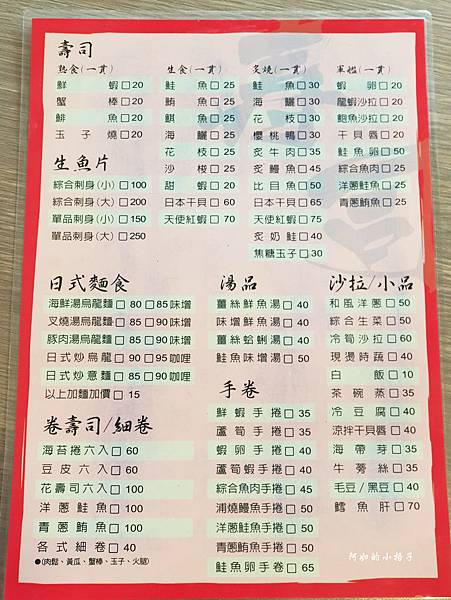 壽司
熟食(一貫)
鮮蝦□20
蟹棒□20
鯡魚□20
玉子燒□20
生食(一貫)
鮭魚□25
鮪魚□25
旗魚□25
海鱺□25
花枝□20
沙梭□25
甜蝦□20
日本干貝□60
天使紅蝦□70
炙燒(一貫)
鮭魚□30
海鱺□30
花枝□30
櫻桃鴨□30
炙牛肉□35
炙鰻魚□45
比目魚□50
日本干貝□65
天使紅蝦□75
炙奶鮭□40
焦糖玉子□30
軍艦(一貫)
蝦卵□20
龍蝦沙拉□20
鮑魚沙拉□20
干貝唇□20
鮭魚卵□50
綜合魚肉□25
洋蔥鮭魚□25
青蔥鮪魚□25
生魚片
綜合刺身(小)□100
綜合刺身(大)□200
單品刺身(小)□150
單品刺身(大)□250
日式麵食
海鮮湯烏龍麵□80□85味增
叉燒湯烏龍麵□85□90味增
豚肉湯烏龍麵□80□85味增
日式炒烏龍□90□95咖哩
日式炒意麵□85□90咖哩
以上加麵加價□15
湯品
薑絲鮮魚湯□40
味增鮮魚湯□40
薑絲蛤蜊湯□40
鮭魚味增湯□50
沙拉/小品
和風洋蔥□50
綜合生菜□50
冷筍沙拉□60
現燙時蔬□40
白飯□10
茶碗蒸□35
冷豆腐□40
涼拌干貝唇□40
海帶芽□35
牛蒡絲□35
毛豆/黑豆□40
鱈魚肝□70
手卷
鮮蝦手捲□35
蘆筍手捲□35
蝦卵手捲□40
蘆筍蝦手捲□40
綜合魚肉手捲□45
蒲燒鰻魚手捲□65
洋蔥鮭魚手捲□45
青蔥鮪魚手捲□45
鮭魚卵手卷□65
卷壽司/細卷
海苔捲六入□60
豆皮六入□60
花壽司六入□100
洋蔥鮭魚□100
青蔥鮪魚□100
各式細卷□40
●(肉鬆、黃瓜、蟹棒、玉子、火腿)
阿如的小格子